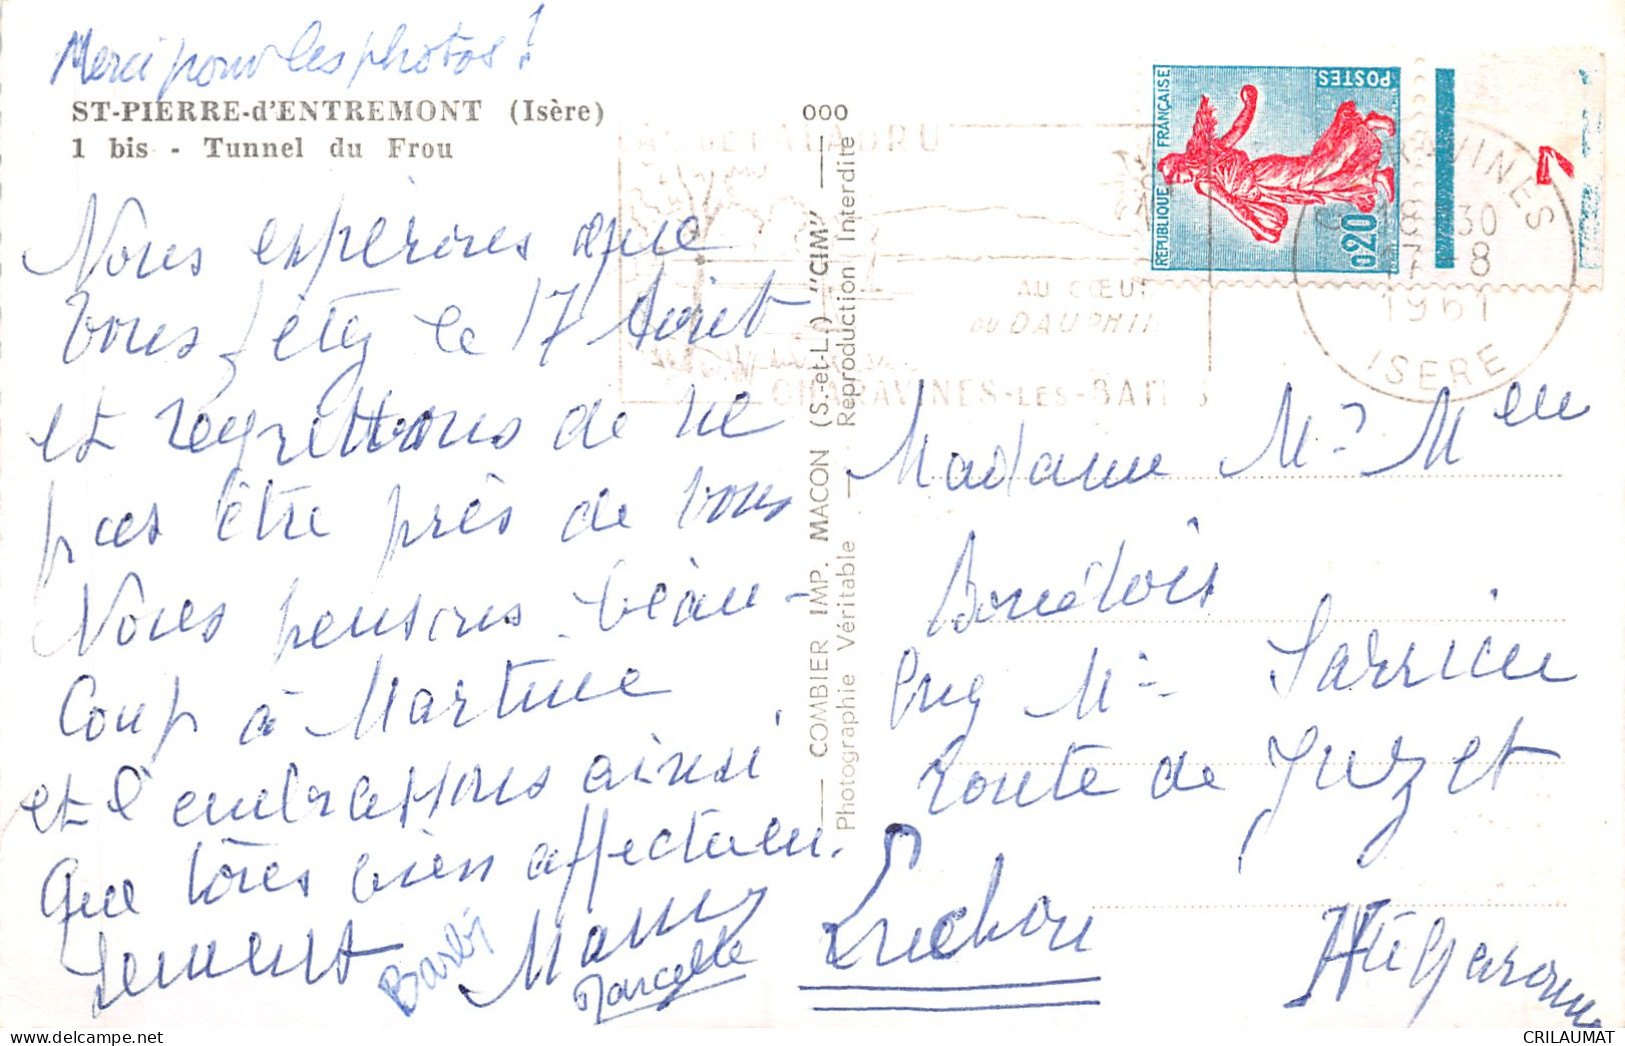 Merci pour les photos !
ST-PIERRE-d'ENTREMONT (Isère)
1 bis - Tunnel du Frou
Nous espérons que
vous fêtez le 17 Août
et regrettons de ne
pas être près de vous
Nous pensons beau-
coup à Martine
et l'embrassons ainsi
que vous bien affectueu.
sement Mamy
Barbi Marcelle
000
COMBIER IMP. MACON (S.-et-L.) "CIM"
Photographie Véritable — Reproduction Interdite
LAC DE PALADRU
AU CŒUR
DU DAUPHIN
CHARAVINES-LES-BAINS
REPUBLIQUE FRANÇAISE
POSTES
0,20
7
CHARAVINES
8 30
7-8
1961
ISERE
Madame Mr Mlle
Bourdois
chez Mme Sarrieu
route de Juzet
Luchon
Hte Garonne
CRILAUMAT